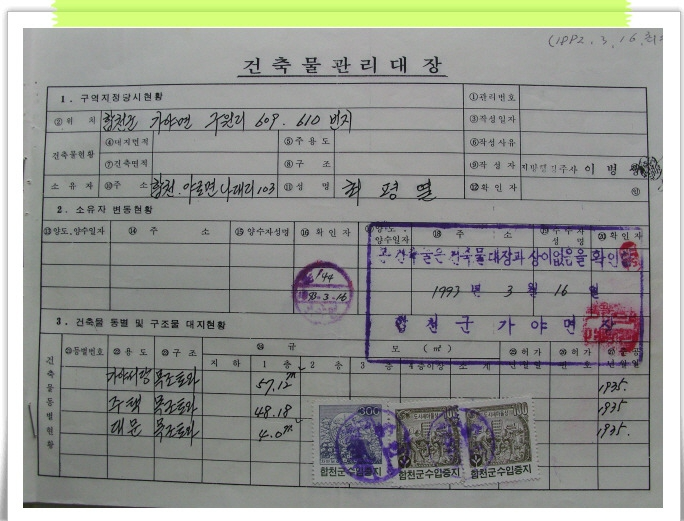 (1882. 3. 16.
건축물관리대장
1. 구역지정당시현황
②위 치 합천군 가야면 구원리 609. 610 번지
①관리번호
③작성일자
건축물현황 ④대지면적 ⑤주용도 ⑥작성사유
⑦건축면적 ⑧구조 ⑨작성자 지방행정주사 이병
소유자 ⑩주소 합천. 야로면 나대리 103 ⑪성명 최평열 ⑫확인자 인
2. 소유자 변동현황
⑬양도,양수일자 ⑭주소 ⑮양수자성명 ⑯확인자 양수일자 ⑱주소 성명 ⑳확인자
본 건축물은 건축물대장과 상이없음을 확인함
1993년 3월 16일
합천군 가야면장
144
93-3-16
3. 건축물 동별 및 구조물 대지현황
건축물동별현황 ㉑동별번호 ㉒용도 ㉓구조 ㉔규모(㎡) ㉕허가년월일 ㉖허가번호
지하 1층 2층 3층 4층이상 소계
가야서당 목조토와 57.12㎡ 1935.
주택 목조토와 48.18 1935
대문 목조토와 4.0㎡ 1935.
300 100 100
합천군수입증지 합천군수입증지 합천군수입증지